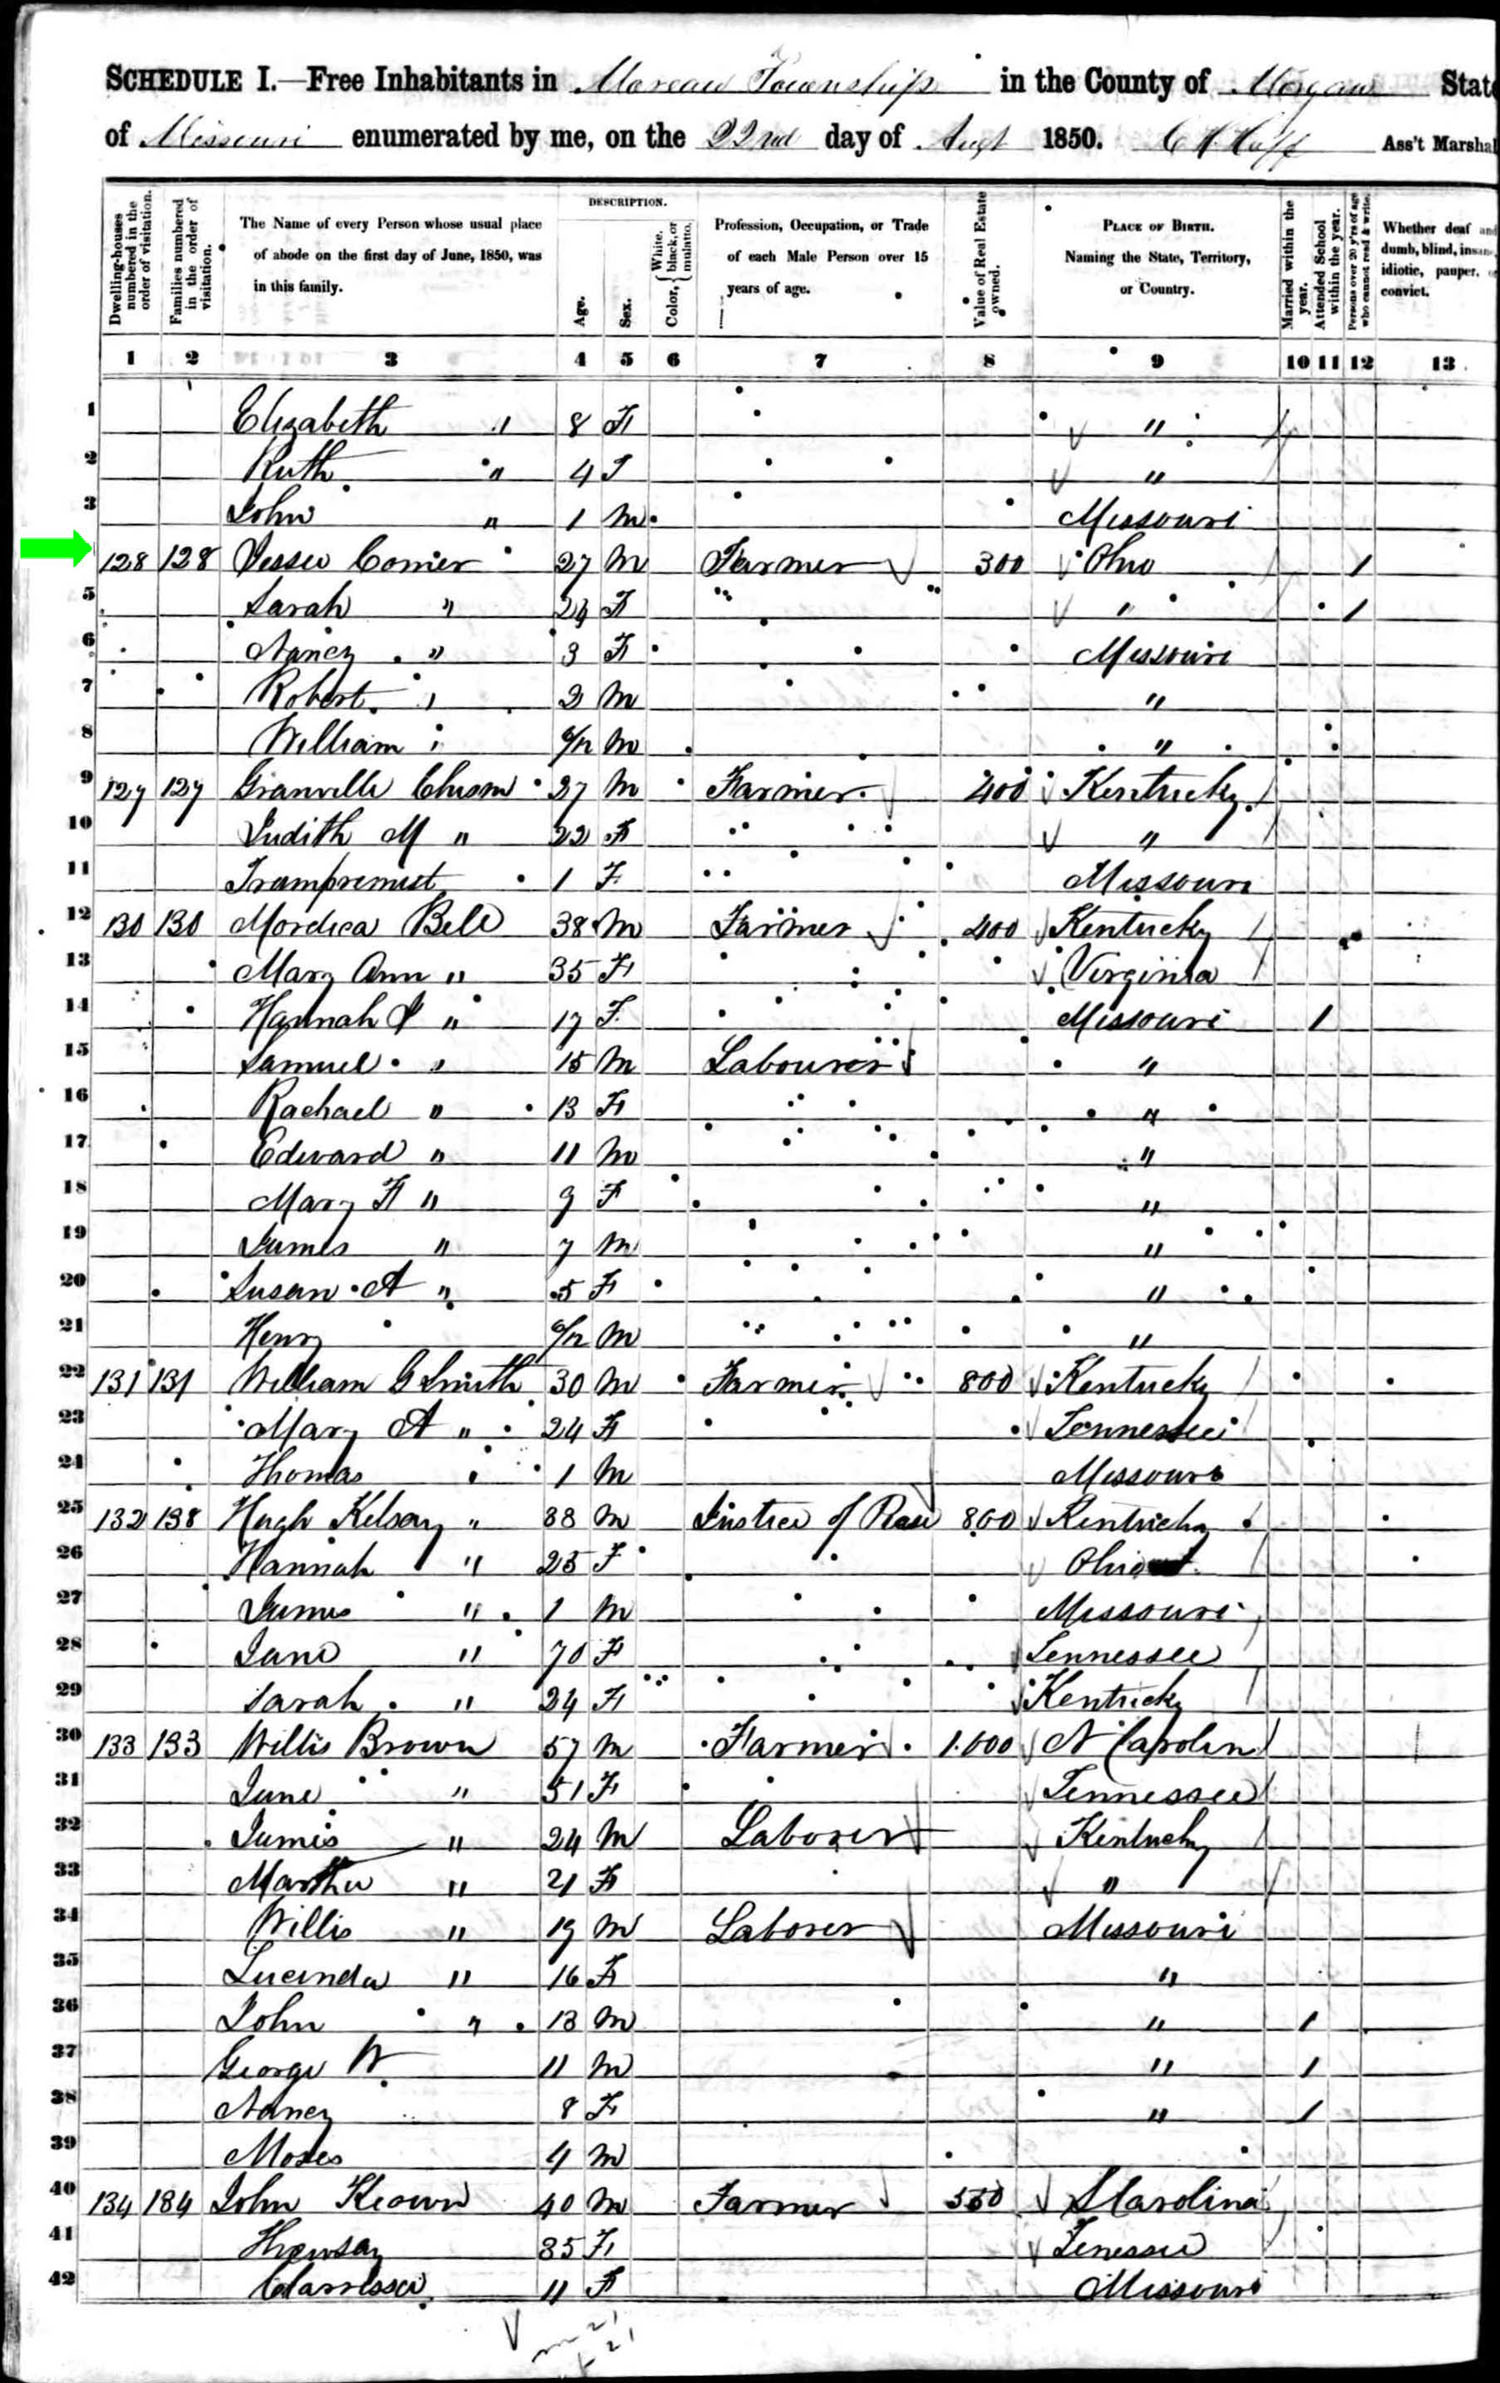 SCHEDULE I.—Free Inhabitants in Moreau Township in the County of Morgan State
of Missouri enumerated by me, on the 22nd day of Augt 1850. Ass't Marshal
Dwelling-houses numbered in the order of visitation.
Families numbered in the order of visitation.
The Name of every Person whose usual place of abode on the first day of June, 1850, was in this family.
DESCRIPTION.
Age.
Sex.
Color, { White, black, or mulatto.
Profession, Occupation, or Trade of each Male Person over 15 years of age.
Value of Real Estate owned.
PLACE OF BIRTH. Naming the State, Territory, or Country.
Married within the year.
Attended School within the year.
Persons over 20 y'rs of age who cannot read & write.
Whether deaf and dumb, blind, insane, idiotic, pauper, or convict.
1 2 3 4 5 6 7 8 9 10 11 12 13
1 Elizabeth " 8 F "
2 Ruth " 4 F "
3 John " 1 M Missouri
128 128 Jesse 27 M Farmer 300 Ohio 1
5 Sarah " 24 F " 1
6 Nancy " 3 F Missouri
7 Robert " 2 M "
8 William " M "
9 127 127 Granville Chism 27 M Farmer 400 Kentucky
10 Judith M " 22 F "
11 1 F Missouri
12 130 130 Mordica Bell 38 M Farmer 400 Kentucky
13 Mary Ann " 35 F Virginia
14 Hannah J " 17 F Missouri 1
15 Samuel " 15 M Labourer "
16 Rachael " 13 F "
17 Edward " 11 M "
18 Mary F " 9 F "
19 James " 7 M "
20 Susan A " 5 F "
21 Henry M "
22 131 131 William G Smith 30 M Farmer 800 Kentucky
23 Mary A " 24 F Tennessee
24 Thomas " 1 M Missouri
25 132 138 Hugh Kelsay " 38 M Justice of Peace 800 Kentucky
26 Hannah " 25 F Ohio
27 James " 1 M Missouri
28 Jane " 70 F Tennessee
29 Sarah " 24 F Kentucky
30 133 133 Willis Brown 57 M Farmer 1.000 N Carolina
31 Jane " 51 F Tennessee
32 James " 24 M Laborer Kentucky
33 Martha " 21 F "
34 Willis " 19 M Laborer Missouri
35 Lucinda " 16 F "
36 John " 13 M " 1
37 George W 11 M " 1
38 Nancy 8 F " 1
39 Moses 4 M
40 134 184 John Keown 40 M Farmer 550 S Carolina
41 35 F Tenessee
42 Clarrissa 11 F Missouri
m 21
f 21